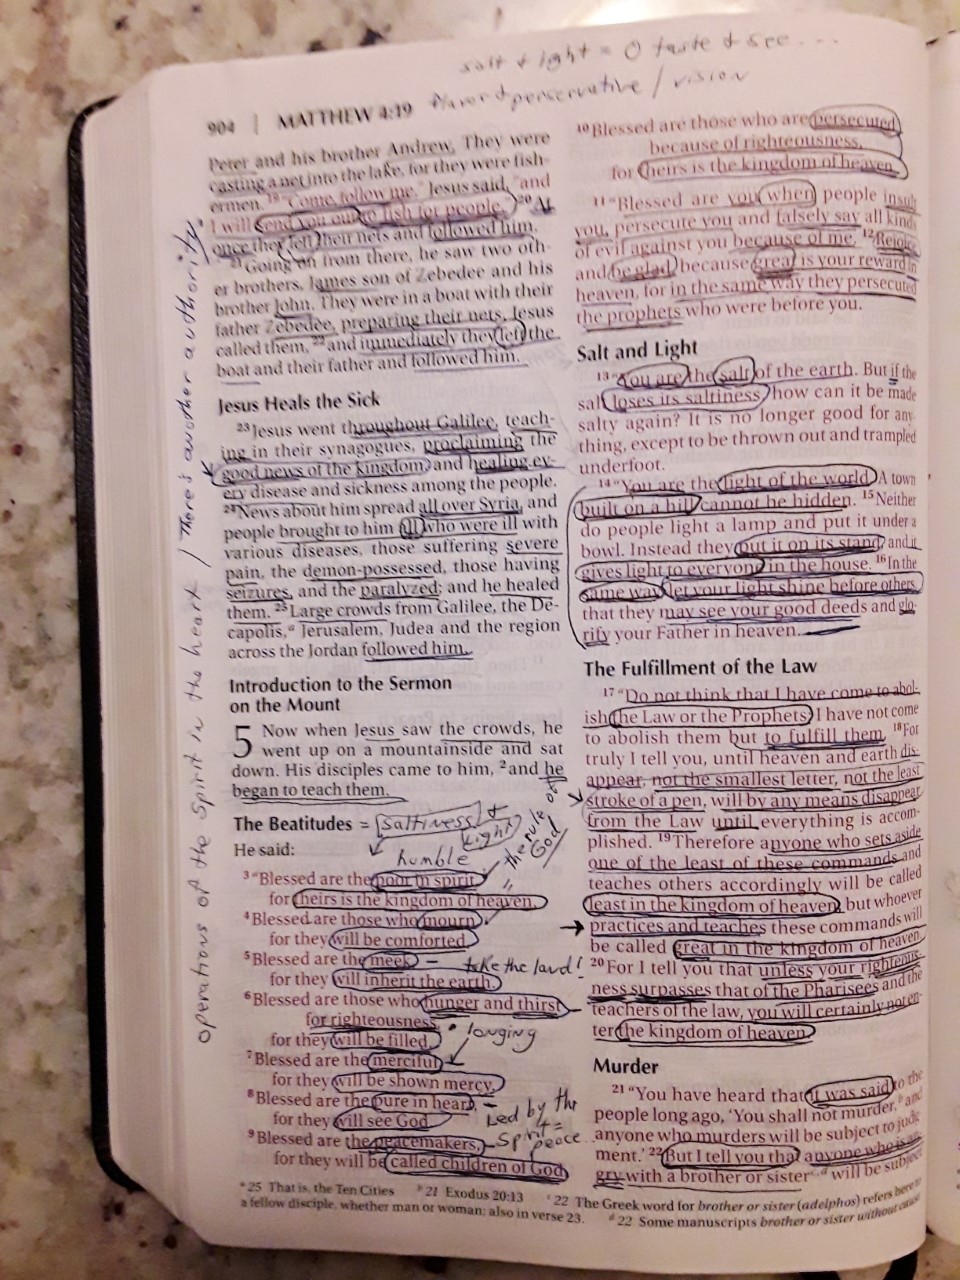 salt + light = O taste + see ...
flavor + perservative / vision
904 | MATTHEW 4:19
Peter and his brother Andrew. They were
casting a net into the lake, for they were fish-
ermen. 19 "Come, follow me," Jesus said, "and
I will send you out to fish for people." 20 At
once they left their nets and followed him.
21 Going on from there, he saw two oth-
er brothers, James son of Zebedee and his
brother John. They were in a boat with their
father Zebedee, preparing their nets. Jesus
called them, 22 and immediately they left the
boat and their father and followed him.
Jesus Heals the Sick
23 Jesus went throughout Galilee, teach-
ing in their synagogues, proclaiming the
good news of the kingdom, and healing ev-
ery disease and sickness among the people.
24 News about him spread all over Syria, and
people brought to him all who were ill with
various diseases, those suffering severe
pain, the demon-possessed, those having
seizures, and the paralyzed; and he healed
them. 25 Large crowds from Galilee, the De-
capolis, a Jerusalem, Judea and the region
across the Jordan followed him.
Introduction to the Sermon
on the Mount
5 Now when Jesus saw the crowds, he
went up on a mountainside and sat
down. His disciples came to him, 2 and he
began to teach them.
The Beatitudes = saltiness +
Light
He said:
humble
the rule of God
3 "Blessed are the poor in spirit,
for theirs is the kingdom of heaven.
4 Blessed are those who mourn,
for they will be comforted.
5 Blessed are the meek, – take the land!
for they will inherit the earth.
6 Blessed are those who hunger and thirst
for righteousness,
for they will be filled. longing
7 Blessed are the merciful,
for they will be shown mercy.
8 Blessed are the pure in heart, – Led by the
for they will see God. Spirit =
9 Blessed are the peacemakers, peace
for they will be called children of God.
operations of the Spirit in the heart / There's another authority
10 Blessed are those who are persecuted
because of righteousness,
for theirs is the kingdom of heaven.
11 "Blessed are you when people insult
you, persecute you and falsely say all kinds
of evil against you because of me. 12 Rejoice
and be glad, because great is your reward in
heaven, for in the same way they persecuted
the prophets who were before you.
Salt and Light
13 "You are the salt of the earth. But if the
salt loses its saltiness, how can it be made
salty again? It is no longer good for any-
thing, except to be thrown out and trampled
underfoot.
14 "You are the light of the world. A town
built on a hill cannot be hidden. 15 Neither
do people light a lamp and put it under a
bowl. Instead they put it on its stand, and it
gives light to everyone in the house. 16 In the
same way, let your light shine before others,
that they may see your good deeds and glo-
rify your Father in heaven.
The Fulfillment of the Law
17 "Do not think that I have come to abol-
ish the Law or the Prophets; I have not come
to abolish them but to fulfill them. 18 For
truly I tell you, until heaven and earth dis-
appear, not the smallest letter, not the least
stroke of a pen, will by any means disappear
from the Law until everything is accom-
plished. 19 Therefore anyone who sets aside
one of the least of these commands and
teaches others accordingly will be called
least in the kingdom of heaven, but whoever
practices and teaches these commands will
be called great in the kingdom of heaven.
20 For I tell you that unless your righteous-
ness surpasses that of the Pharisees and the
teachers of the law, you will certainly not en-
ter the kingdom of heaven.
Murder
21 "You have heard that it was said to the
people long ago, 'You shall not murder, b and
anyone who murders will be subject to judg-
ment.' 22 But I tell you that anyone who is an-
gry with a brother or sister c, d will be subject
a 25 That is, the Ten Cities b 21 Exodus 20:13 c 22 The Greek word for brother or sister (adelphos) refers here to
a fellow disciple, whether man or woman; also in verse 23. d 22 Some manuscripts brother or sister without cause